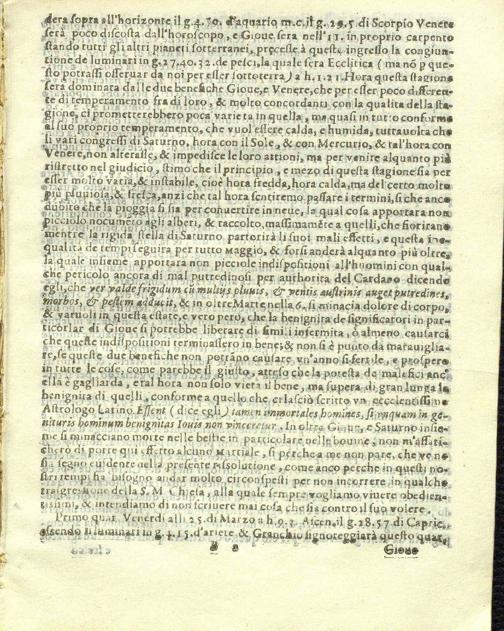 dera sopra all'horizonte il g.4.70. d'aquario m.c.il g.29.5 di Scorpio Venere
serà poco discosta dall'horoscopo, e Gioue sera nell'11. in proprio carpento
stando tutti gli altri pianeti sotterranei, precesse à questa ingresso la congiun-
tione de luminari in g.27.40.32. de pesci, la quale sera Ecclitica ( ma nõ p que-
sto potrassi osseruar da noi per esser sottoterra) a h.1.21. Hora questa stagione
serà dominata dalle due benefiche Gioue, e Venere, che per esser poco differen-
te di temperamento fra di loro, & molto concordanti con la qualita della sta-
gione, ci prometterebbero poca varieta in quella, ma quasi in tutto conforme
al suo proprio temperamento, che vuol essere calda, e humida, tuttauolta che
li vari congressi di Saturno, hora con il Sole, & con Mercurio, & tal'hora con
Venere, non alterasse, & impedisce le loro attioni, ma per venire alquanto più
ristretto nel giudicio, stimo che il principio, e mezo di questa stagione sia per
esser molto varia, & instabile, cioè hora fredda, hora calda, ma del certo molto
più piuuiosa, & fresca, anzi che tal hora sentiremo passare i termini, si che anco
dubito che la pioggia si sia per conuertire in neue, la qual cosa apportara non
picciolo nocumento agli alberi, & raccolto, massimamẽte a quelli, che fioriranno
mentre la rigida stella di Saturno partorirà li suoi mali effetti, e questa ine-
qualità de tempi seguira per tutto Maggio, & forsi anderà alquanto più oltre,
la quale insieme apportara non picciole indispositioni all'huomini con qual-
che pericolo ancora di mal putredinosi per authorita del Cardano dicendo
egli, che ver valde frigidum cũ multis pluuis, & ventis austrinis auget putredines,
morbos, & pestem adducit, & in oltre Marte nella 6. si minacia dolore di corpo,
& varuoli in questa estate, e vero però, che la benignità de significatori in par-
ticolar di Gioue si potrebbe liberare di simili infermita, ò almeno causarci
che queste indispositioni terminassero in bene, & non si è punto da marauiglia-
re, se queste due benefiche non potrãno causare vn'anno si fertile, e prospero
in tutte le cose come parebbe il giusto, atteso che la potesta de malefici anc
ella è gagliarda, e tal hora non solo vieta il bene, ma supera di gran lunga la
benignita di quelli, conforme a quello che ci lasciò scritto vn eccelentissimo
Astrologo Latino. Essent ( dice egli ) tamen immortales homines, si vnquam in ge-
nituris hominum benignitas Iouis non vinceretur. In oltre Gioue, e Saturno insie-
me si minacciano morte nelle bestie in particolare nelle bouine, non m'affati-
cherò di porte qui effetto alcuno Martiale, si perche a me non pare, che vene
sia segno euidente nella presente risolutione, come anco perche in questi no-
stri tempi ha bisogno andar molto circonspetti per non incorrere in qualche
traigressione della S. M. Chiesa, alla quale sempre vogliamo viuere obedien-
tissimi, & intendiamo di non scriuere mai cosa che sia contro il suo volere.
Primo quar. Venerdi alli 25. di Marzo a h.9.2. Ascen. il g.28.57 di Capric.
essendo li luminari in g.4.15. d'ariete & Granchio signoreggiarà questo quar.
Gioue